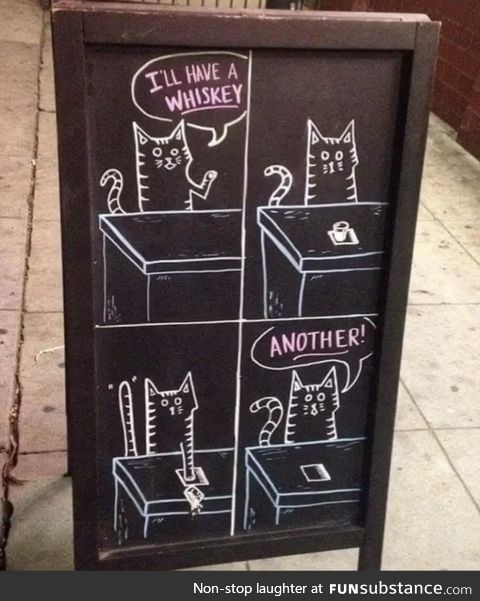 I'LL HAVE A
WHISKEY
ANOTHER!
Non-stop laughter at FUNsubstance.com